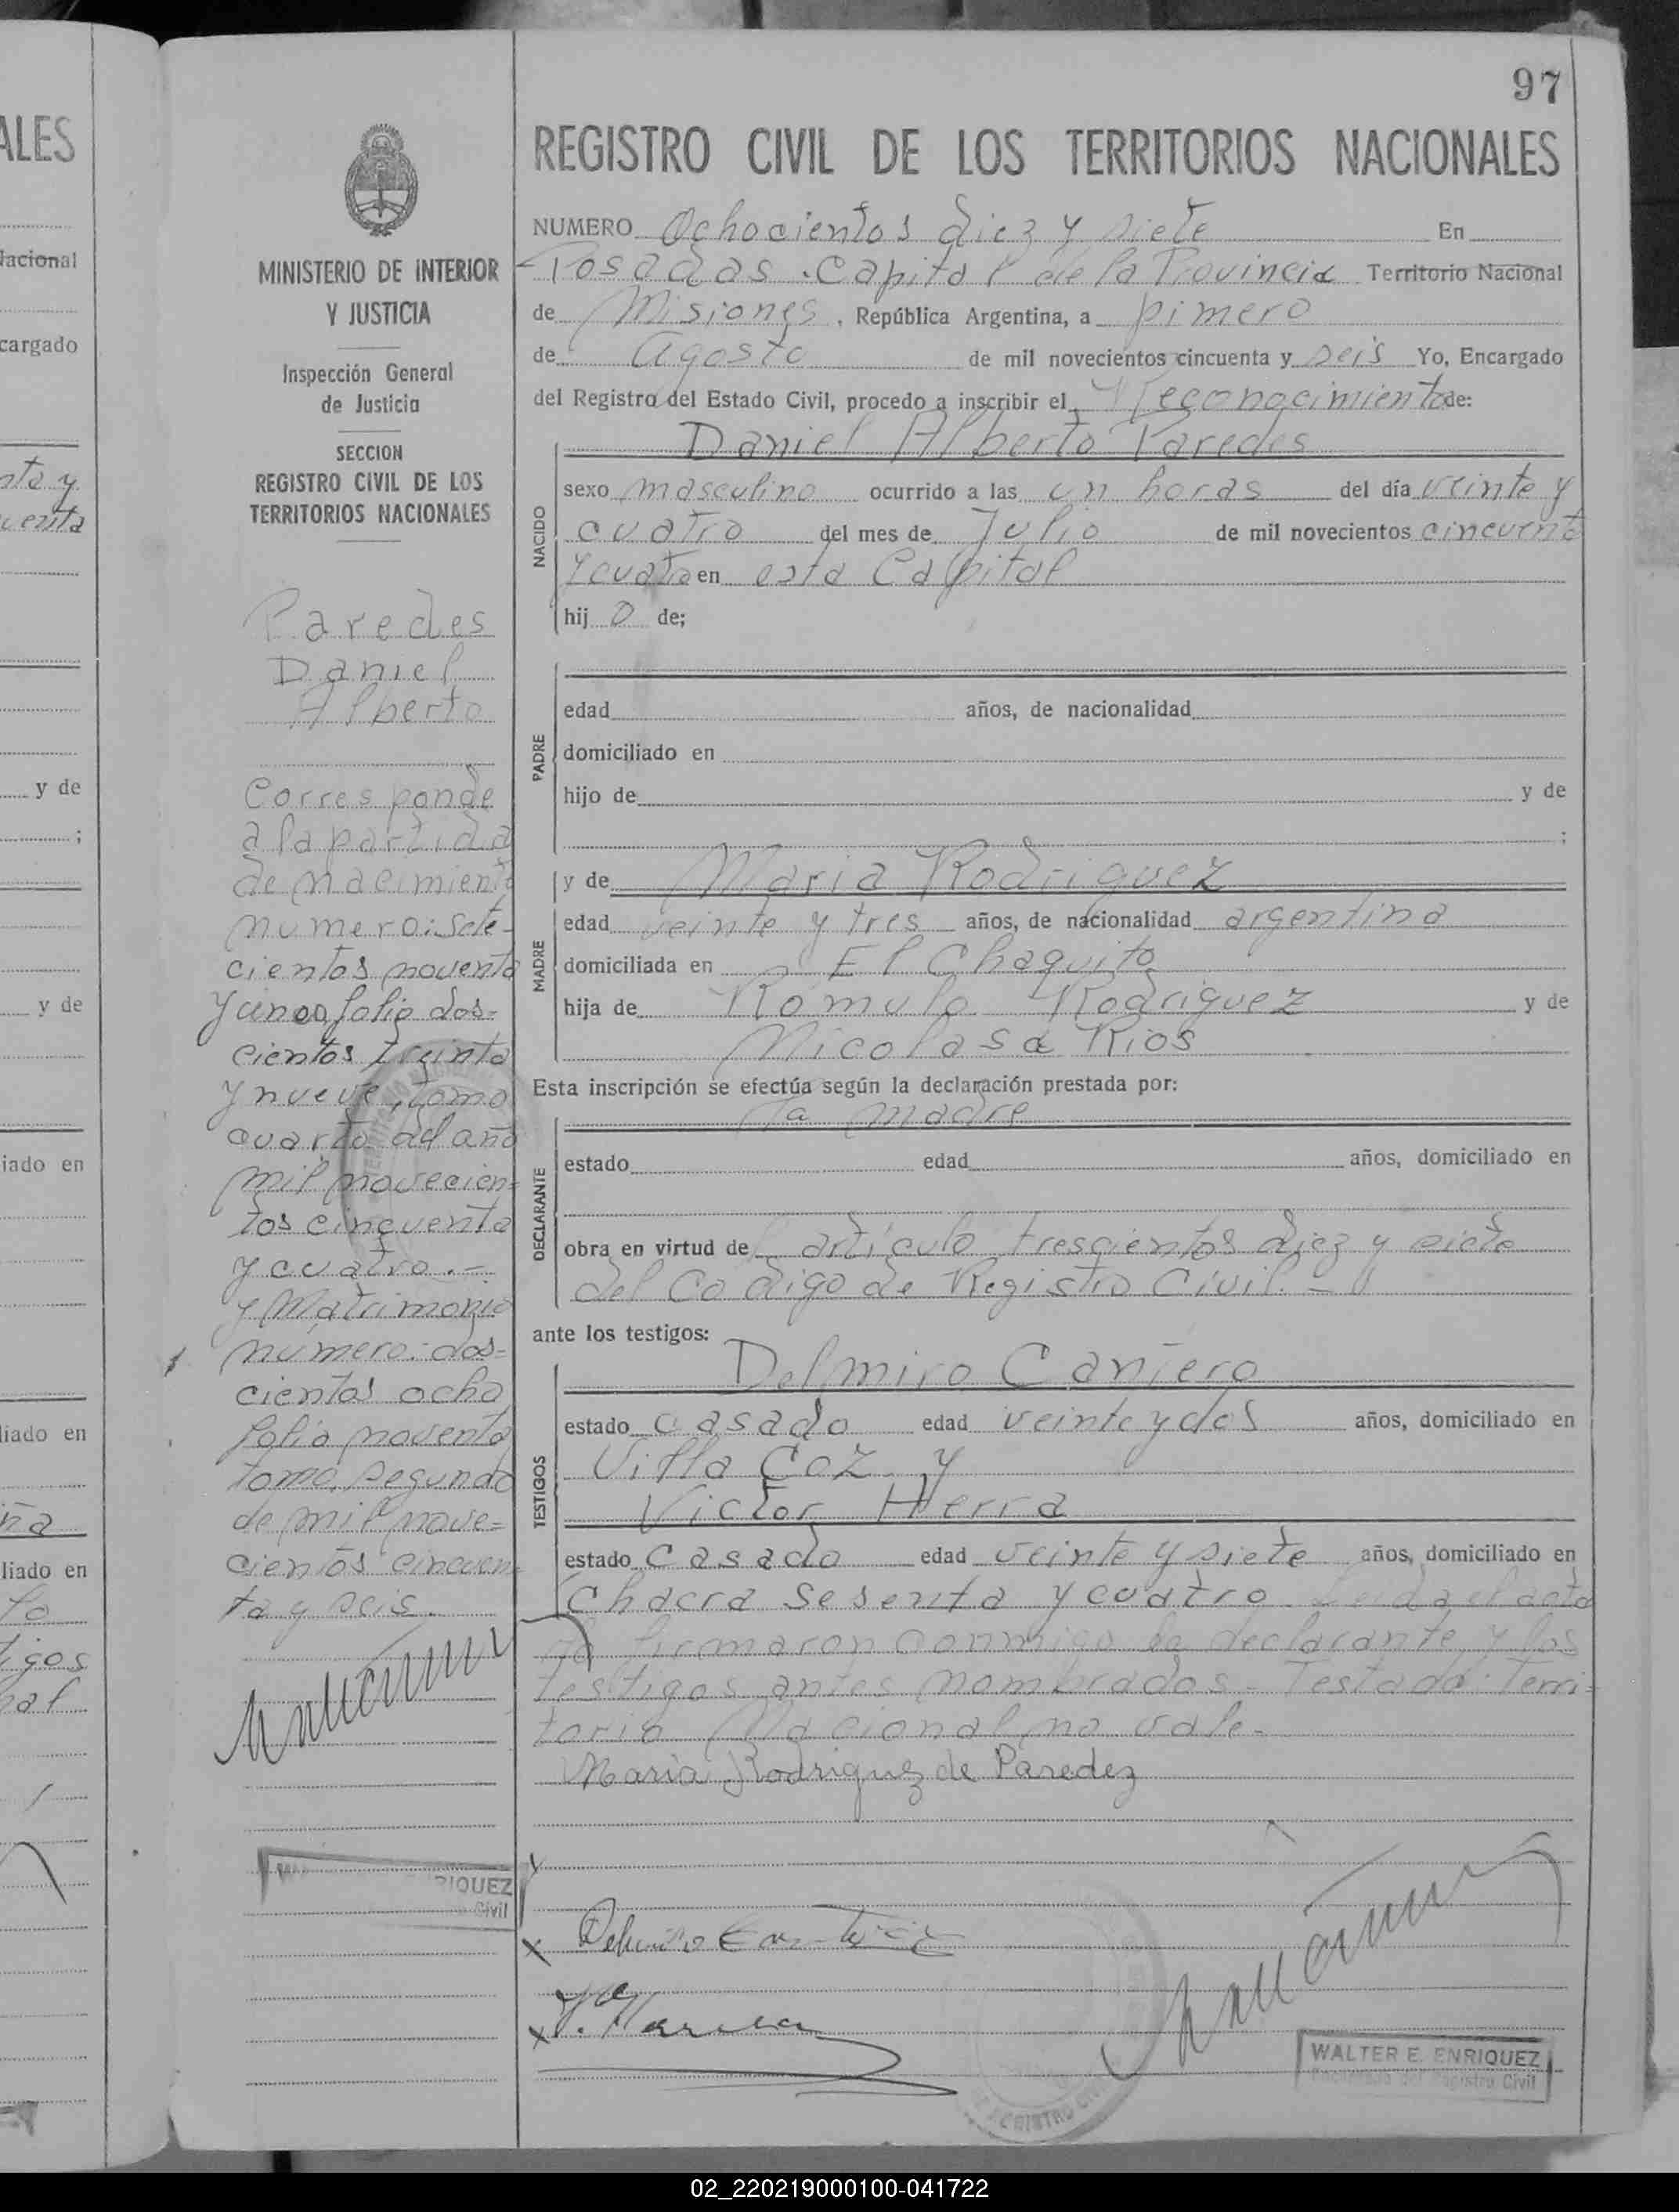 97
ALES
Nacional
cargado
nta y
cuenta
y de
;
y de
iado en
liado en
ña
liado en
to
tigos
nal
MINISTERIO DE INTERIOR
Y JUSTICIA
Inspección General
de Justicia
SECCION
REGISTRO CIVIL DE LOS
TERRITORIOS NACIONALES
Paredes
Daniel
Alberto
Corresponde
a la partida
de nacimiento
numero: sete-
cientos noventa
y cinco folio dos-
cientos treinta
y nueve, tomo
cuarto del año
mil novecien-
tos cincuenta
y cuatro.-
y Matrimonio
número: dos-
cientos ocho
folio noventa
tomo segundo
de mil nove=
cientos cincuen
ta y seis.
RIQUEZ
Civil
REGISTRO CIVIL DE LOS TERRITORIOS NACIONALES
NUMERO Ochocientos diez y siete En
Posadas. Capital de la Provincia Territorio Nacional
de Misiones, República Argentina, a pimero
de Agosto de mil novecientos cincuenta y seis Yo, Encargado
del Registro del Estado Civil, procedo a inscribir el Reconocimiento de:
Daniel Alberto Paredes
NACIDO
sexo masculino ocurrido a las un horas del día veinte y
cuatro del mes de Julio de mil novecientos cincuenta
y cuatro en esta Capital
hij o de;
PADRE
edad años, de nacionalidad
domiciliado en
hijo de y de
;
y de Maria Rodriguez
MADRE
edad veinte y tres años, de nacionalidad argentina
domiciliada en El Chaquito
hija de Romulo Rodriguez y de
Nicolasa Rios
Esta inscripción se efectúa según la declaración prestada por:
la madre
DECLARANTE
estado edad años, domiciliado en
obra en virtud de l artículo trescientos diez y siete
del Codigo de Registro Civil.-
ante los testigos:
Delmiro Caniero
TESTIGOS
estado casado edad veinte y dos años, domiciliado en
Villa Coz y
Victor Hierra
estado casado edad veinte y siete años, domiciliado en
Chacra sesenta y cuatro. Leida el acta
la firmaron conmigo la declarante y los
testigos antes nombrados- Testado: Terri=
torio Nacional no vale-
Maria Rodriguez de Paredez
WALTER E. ENRIQUEZ
Encargado del Registro Civil
REGISTRO CIVIL
02_220219000100-041722